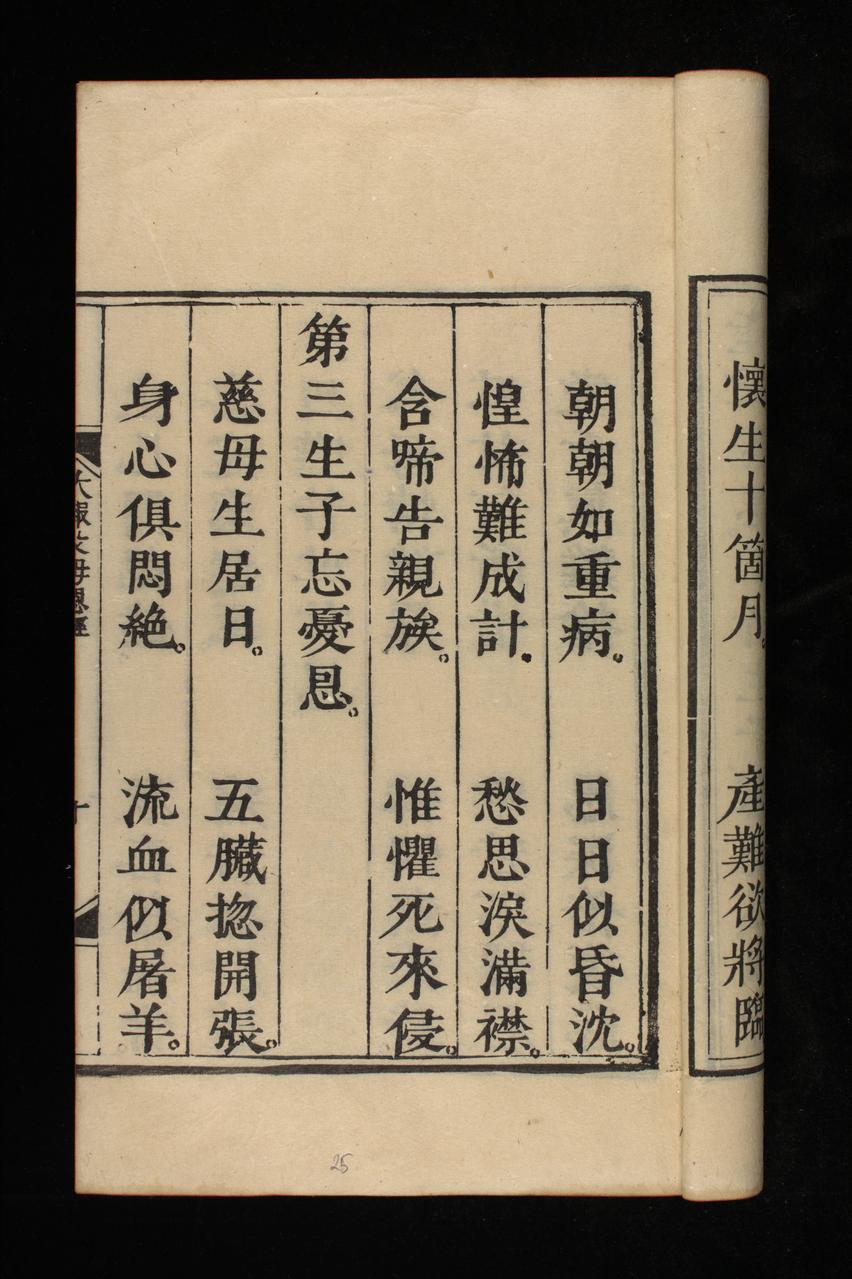 懷生十箇月。　產難欲將臨
朝朝如重病。　日日似昏沈。
惶怖難成計.　愁思淚滿襟。
含啼告親族。　惟懼死來侵。
第三生子忘憂恩。
慈母生居日。　五臟捴開張。
身心俱悶絶。　流血似屠羊。
大報父母恩經
十
25